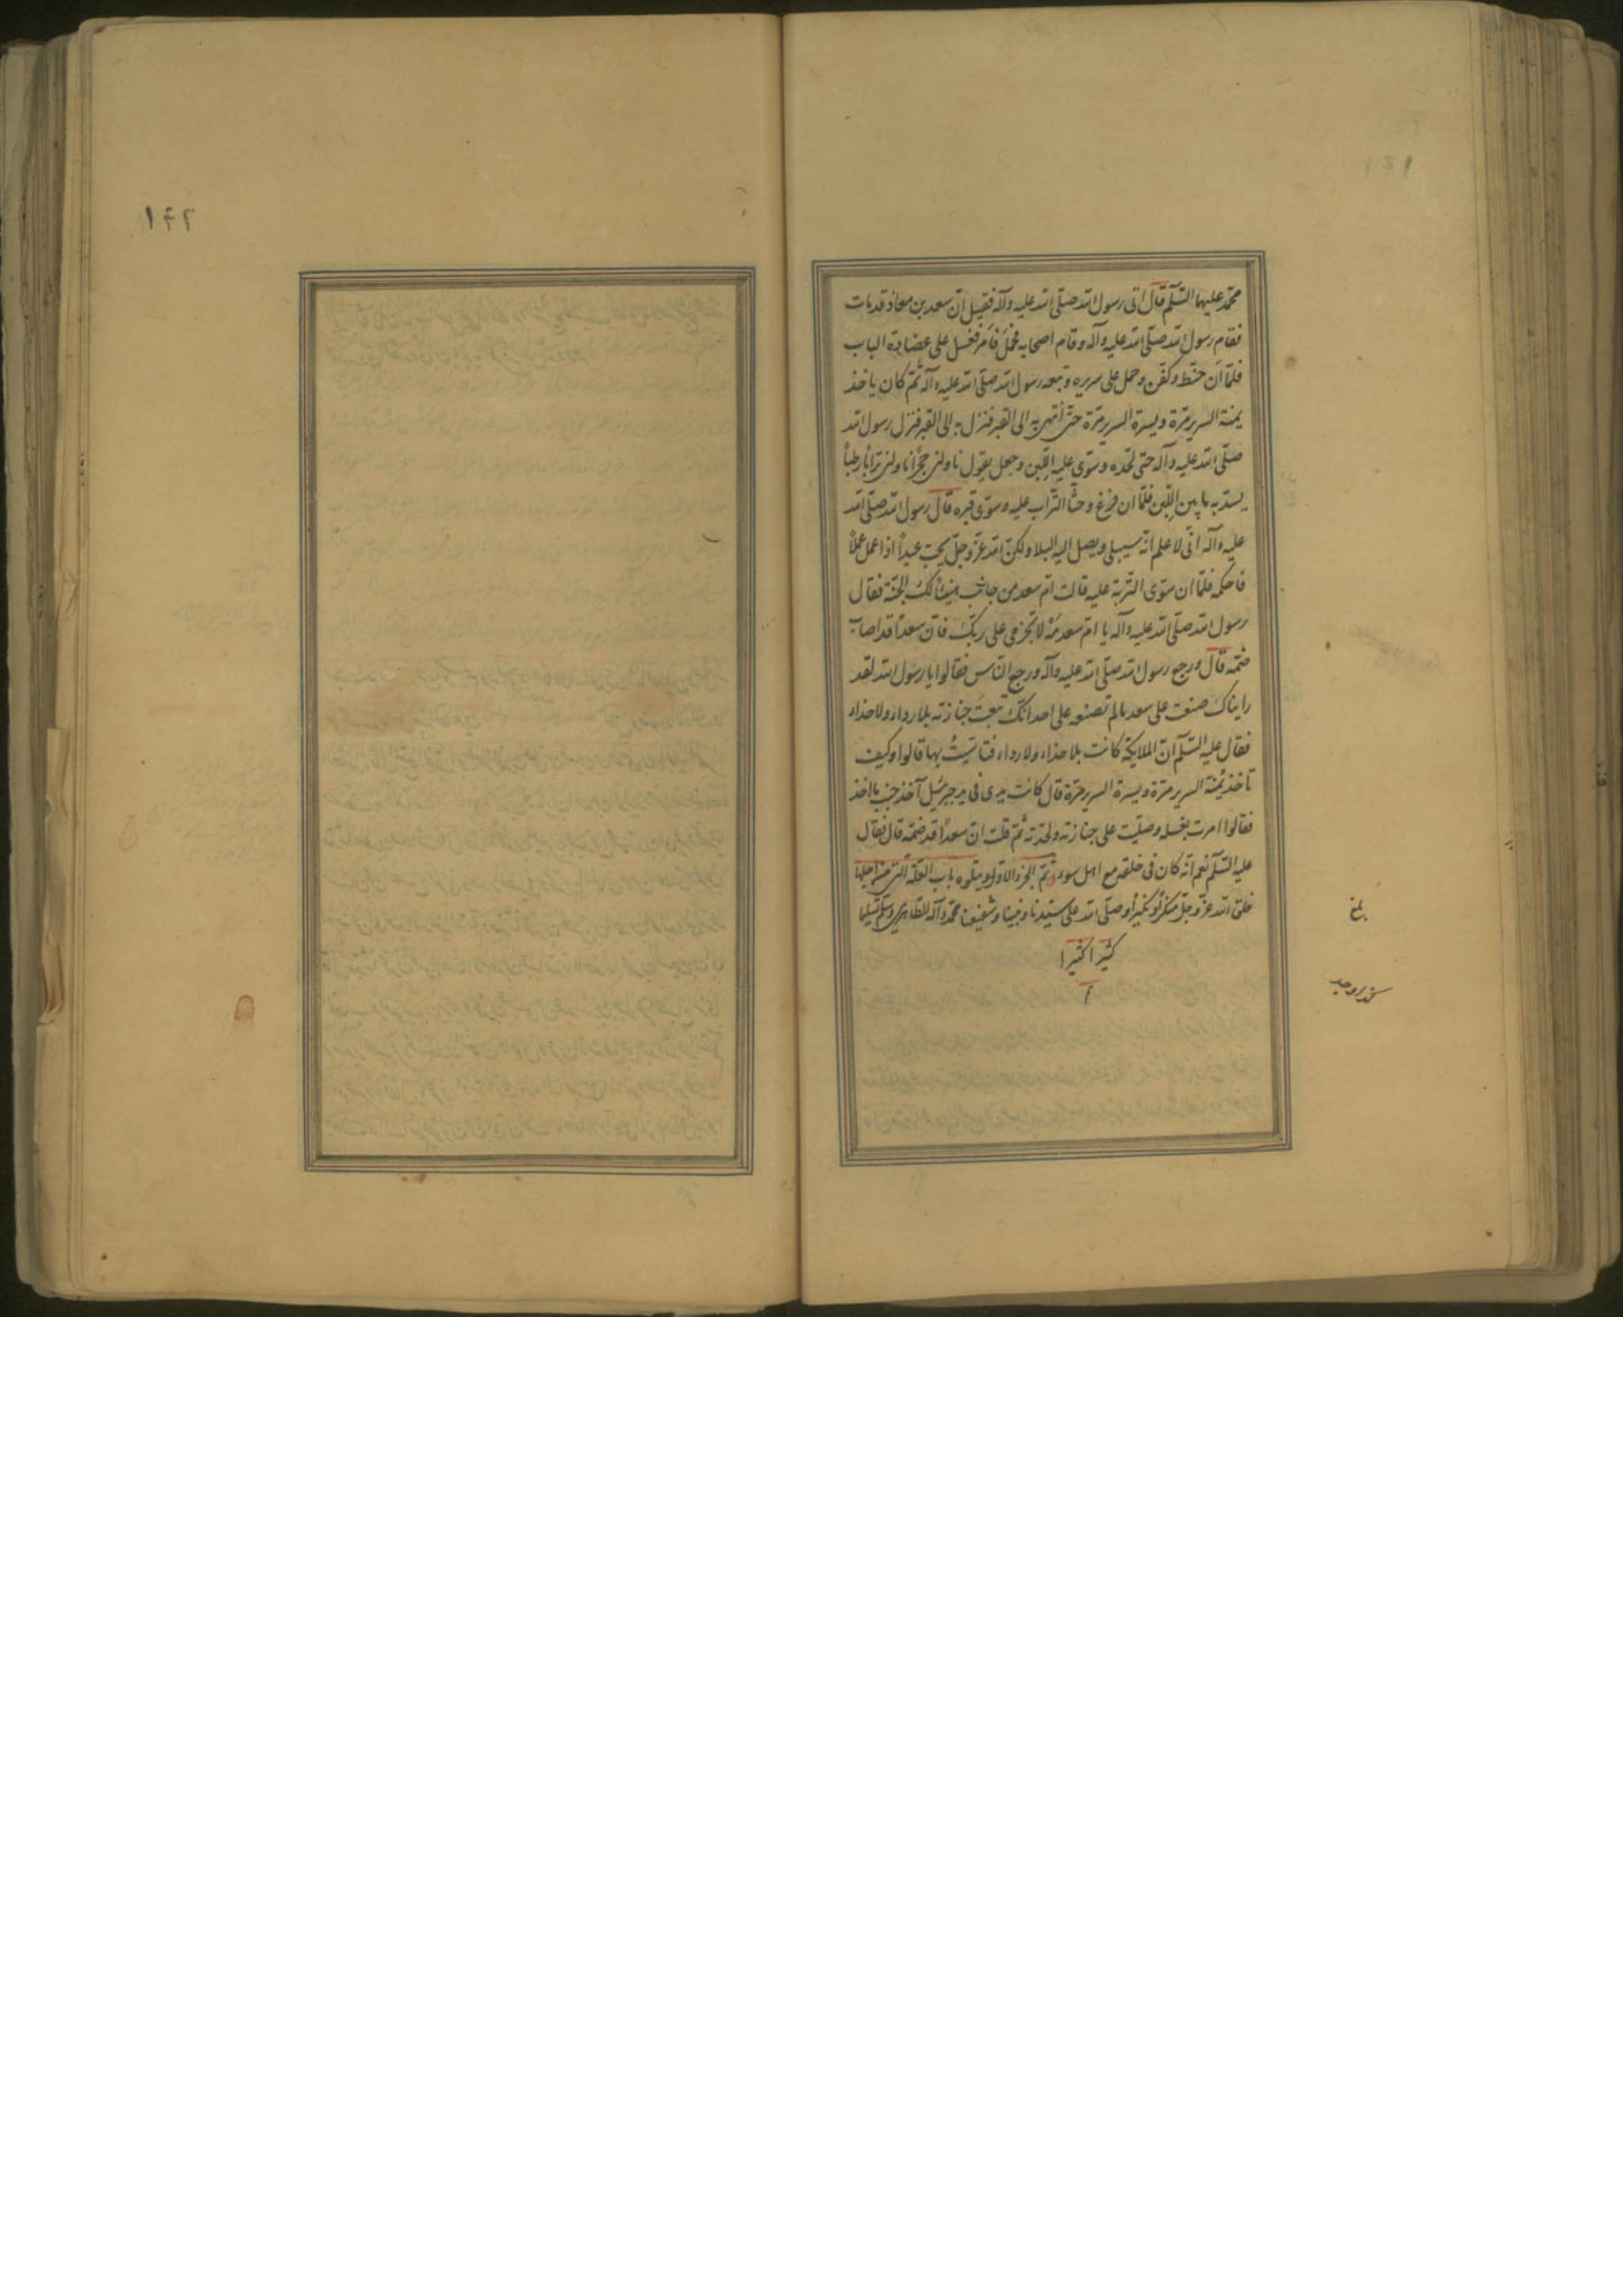 محمّد عليهما السّلم قال اتى رسول الله صلّى الله عليه وآله فقيل انّ سعد بن معاذ قد مات
فقام رسول الله صلّى الله عليه وآله وقام اصحابه فحمل فامر فغسل على عضادة الباب
فلمّا ان حنّط وكفّن وحمل على سريره وتبعه رسول الله صلّى الله عليه وآله ثمّ كان ياخذ
يمنة السرير مرّة ويسرة السرير مرّة حتّى انتهى به الى القبر فنزل به الى القبر فنزل رسول الله
صلّى الله عليه وآله حتى لحّده وسوّى عليه اللّبن وجعل يقول ناولنى حجراً ناولنى تراباً رطباً
يسدّ به ما بين اللّبن فلمّا ان فرغ وحثا التّراب عليه وسوّى قبره قال رسول الله صلّى الله
عليه وآله انّى لاعلم انّه سيبلى ويصل اليه البلا ولكنّ الله عزّ وجلّ يحبّ عبداً اذا عمل عملاً
فاحكمه فلمّا ان سوّى التّربة عليه قالت امّ سعد من جانب هنيئاً لك الجنّة فقال
رسول الله صلّى الله عليه وآله يا امّ سعد مَهْ لا تجزمى على ربّك فانّ سعداً قد اصابه
ضمّه قال ورجع رسول الله صلّى الله عليه وآله ورجع النّاس فقالوا يا رسول الله لقد
رايناك صنعت على سعد ما لم تصنعه على احد انّك تبعت جنازته بلا رداء ولا حذاء
فقال عليه السّلم انّ الملايكة كانت بلا حذاء ولا رداء فتاسّيتُ بها قالوا وكيف
تاخذ يُمنة السرير مرّة ويسرة السرير مرّة قال كانت يدى فى يد جبرئيل آخذ حيث ما اخذ
فقالوا امرت بغسله وصلّيت على جنازته ولحّدته ثمّ قلت انّ سعداً قد ضمّه قال فقال
عليه السّلم نعم انّه كان فى خلقه مع اهل سوء تمّ الجزء الاوّل ويتلوه باب العلّة الّتى من اجلها
خلق الله عزّ وجلّ منكراً ونكيراً وصلّى الله على سيّدنا ونبيّنا وشفيعنا محمّد وآله الطّاهرين وسلّم تسليما
كثيرا كثيرا
بلغ
١٤١
١٤٢